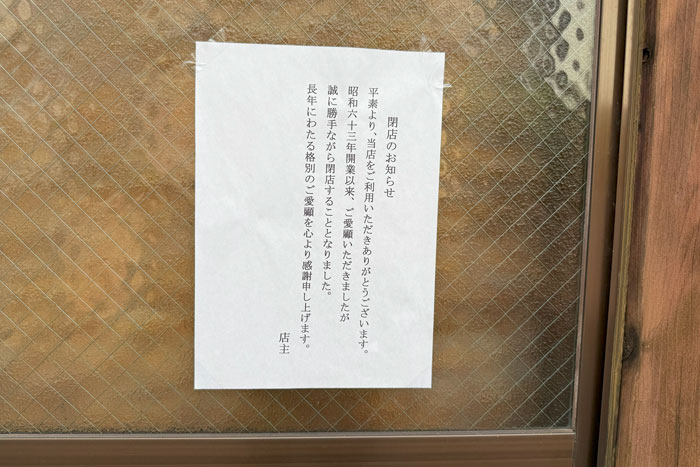 閉店のお知らせ
平素より、当店をご利用いただきありがとうございます。
昭和六十三年開業以来、ご愛顧いただきましたが
誠に勝手ながら閉店することとなりました。
長年にわたる格別のご愛顧を心より感謝申し上げます。
店主